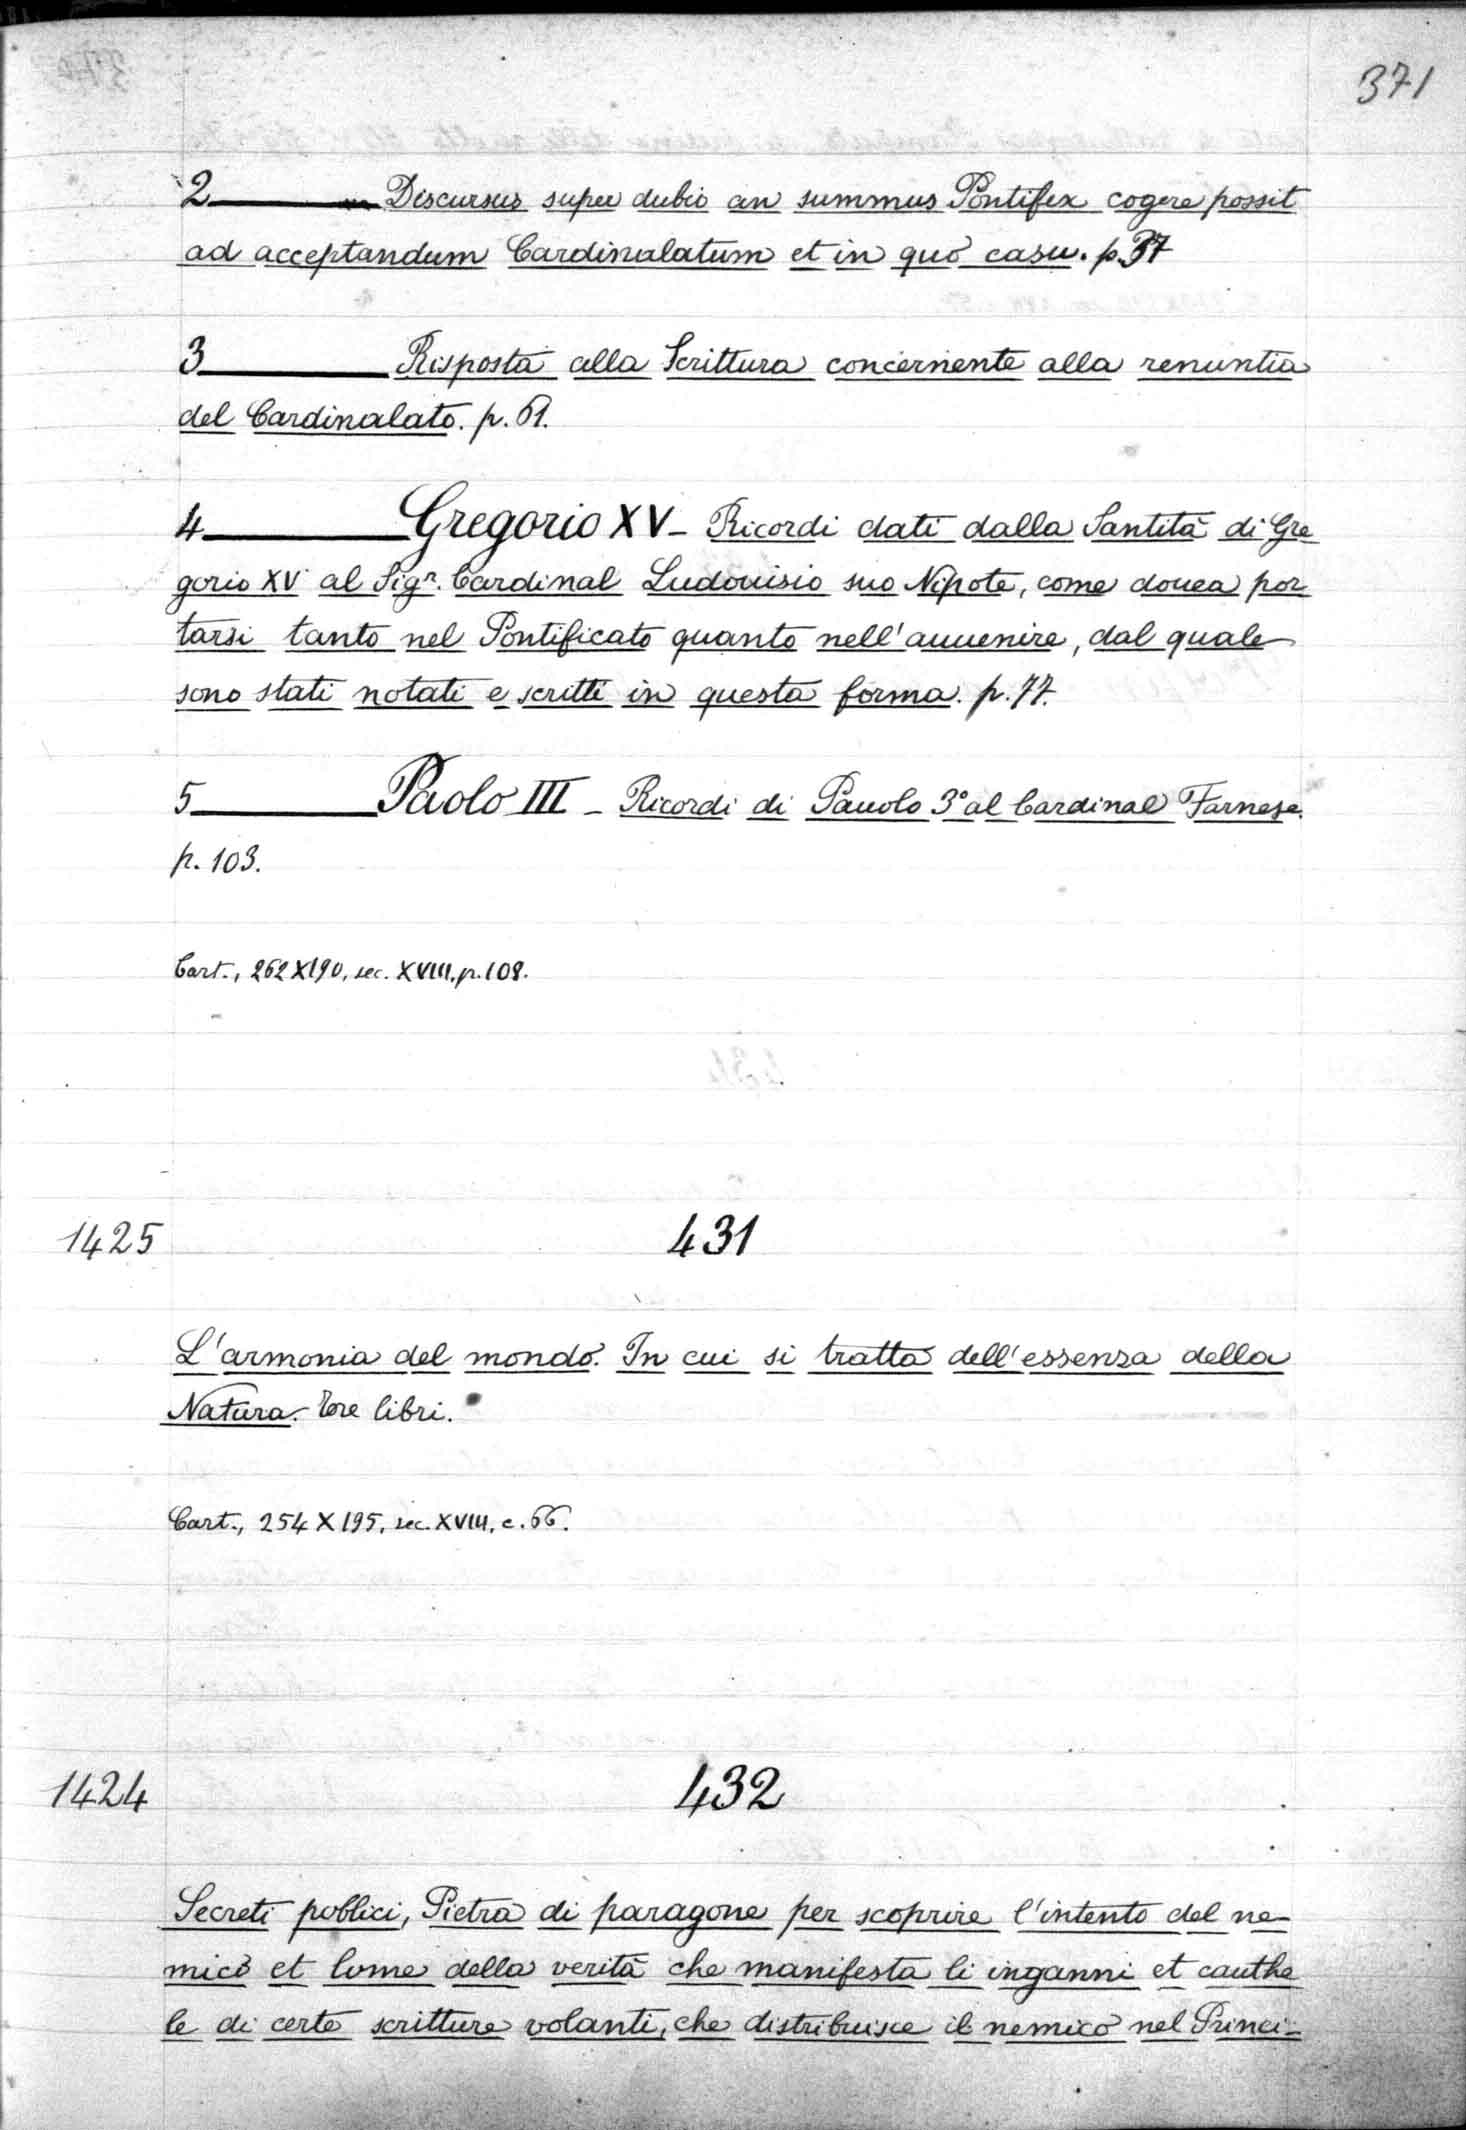 371
2 Discursus super dubio an summus Pontifex cogere possit
ad acceptandum Cardinalatum et in quo casu. p. 37
3 Risposta alla Scrittura concernente alla renuntia
del Cardinalato. p. 61.
4 Gregorio XV - Ricordi dati dalla Santità di Gre
gorio XV al Sigr. Cardinal Ludouisio suo Nipote, come douea por
tarsi tanto nel Pontificato quanto nell'auuenire, dal quale
sono stati notati e scritti in questa forma. p. 77.
5 Paolo III - Ricordi di Pauolo 3º al Cardinal Farnese.
p. 103.
Cart., 262X190, sec. XVIII, p. 108.
1425 431
L'armonia del mondo. In cui si tratta dell'essenza della
Natura. Tre libri.
Cart., 254 X 195, sec. XVIII, c. 66.
1424 432
Secreti poblici, Pietra di paragone per scoprire l'intento del ne-
mico et lome della verità che manifesta li inganni et cauthe
le di certe scritture volanti, che distribuisce il nemico nel Princi-